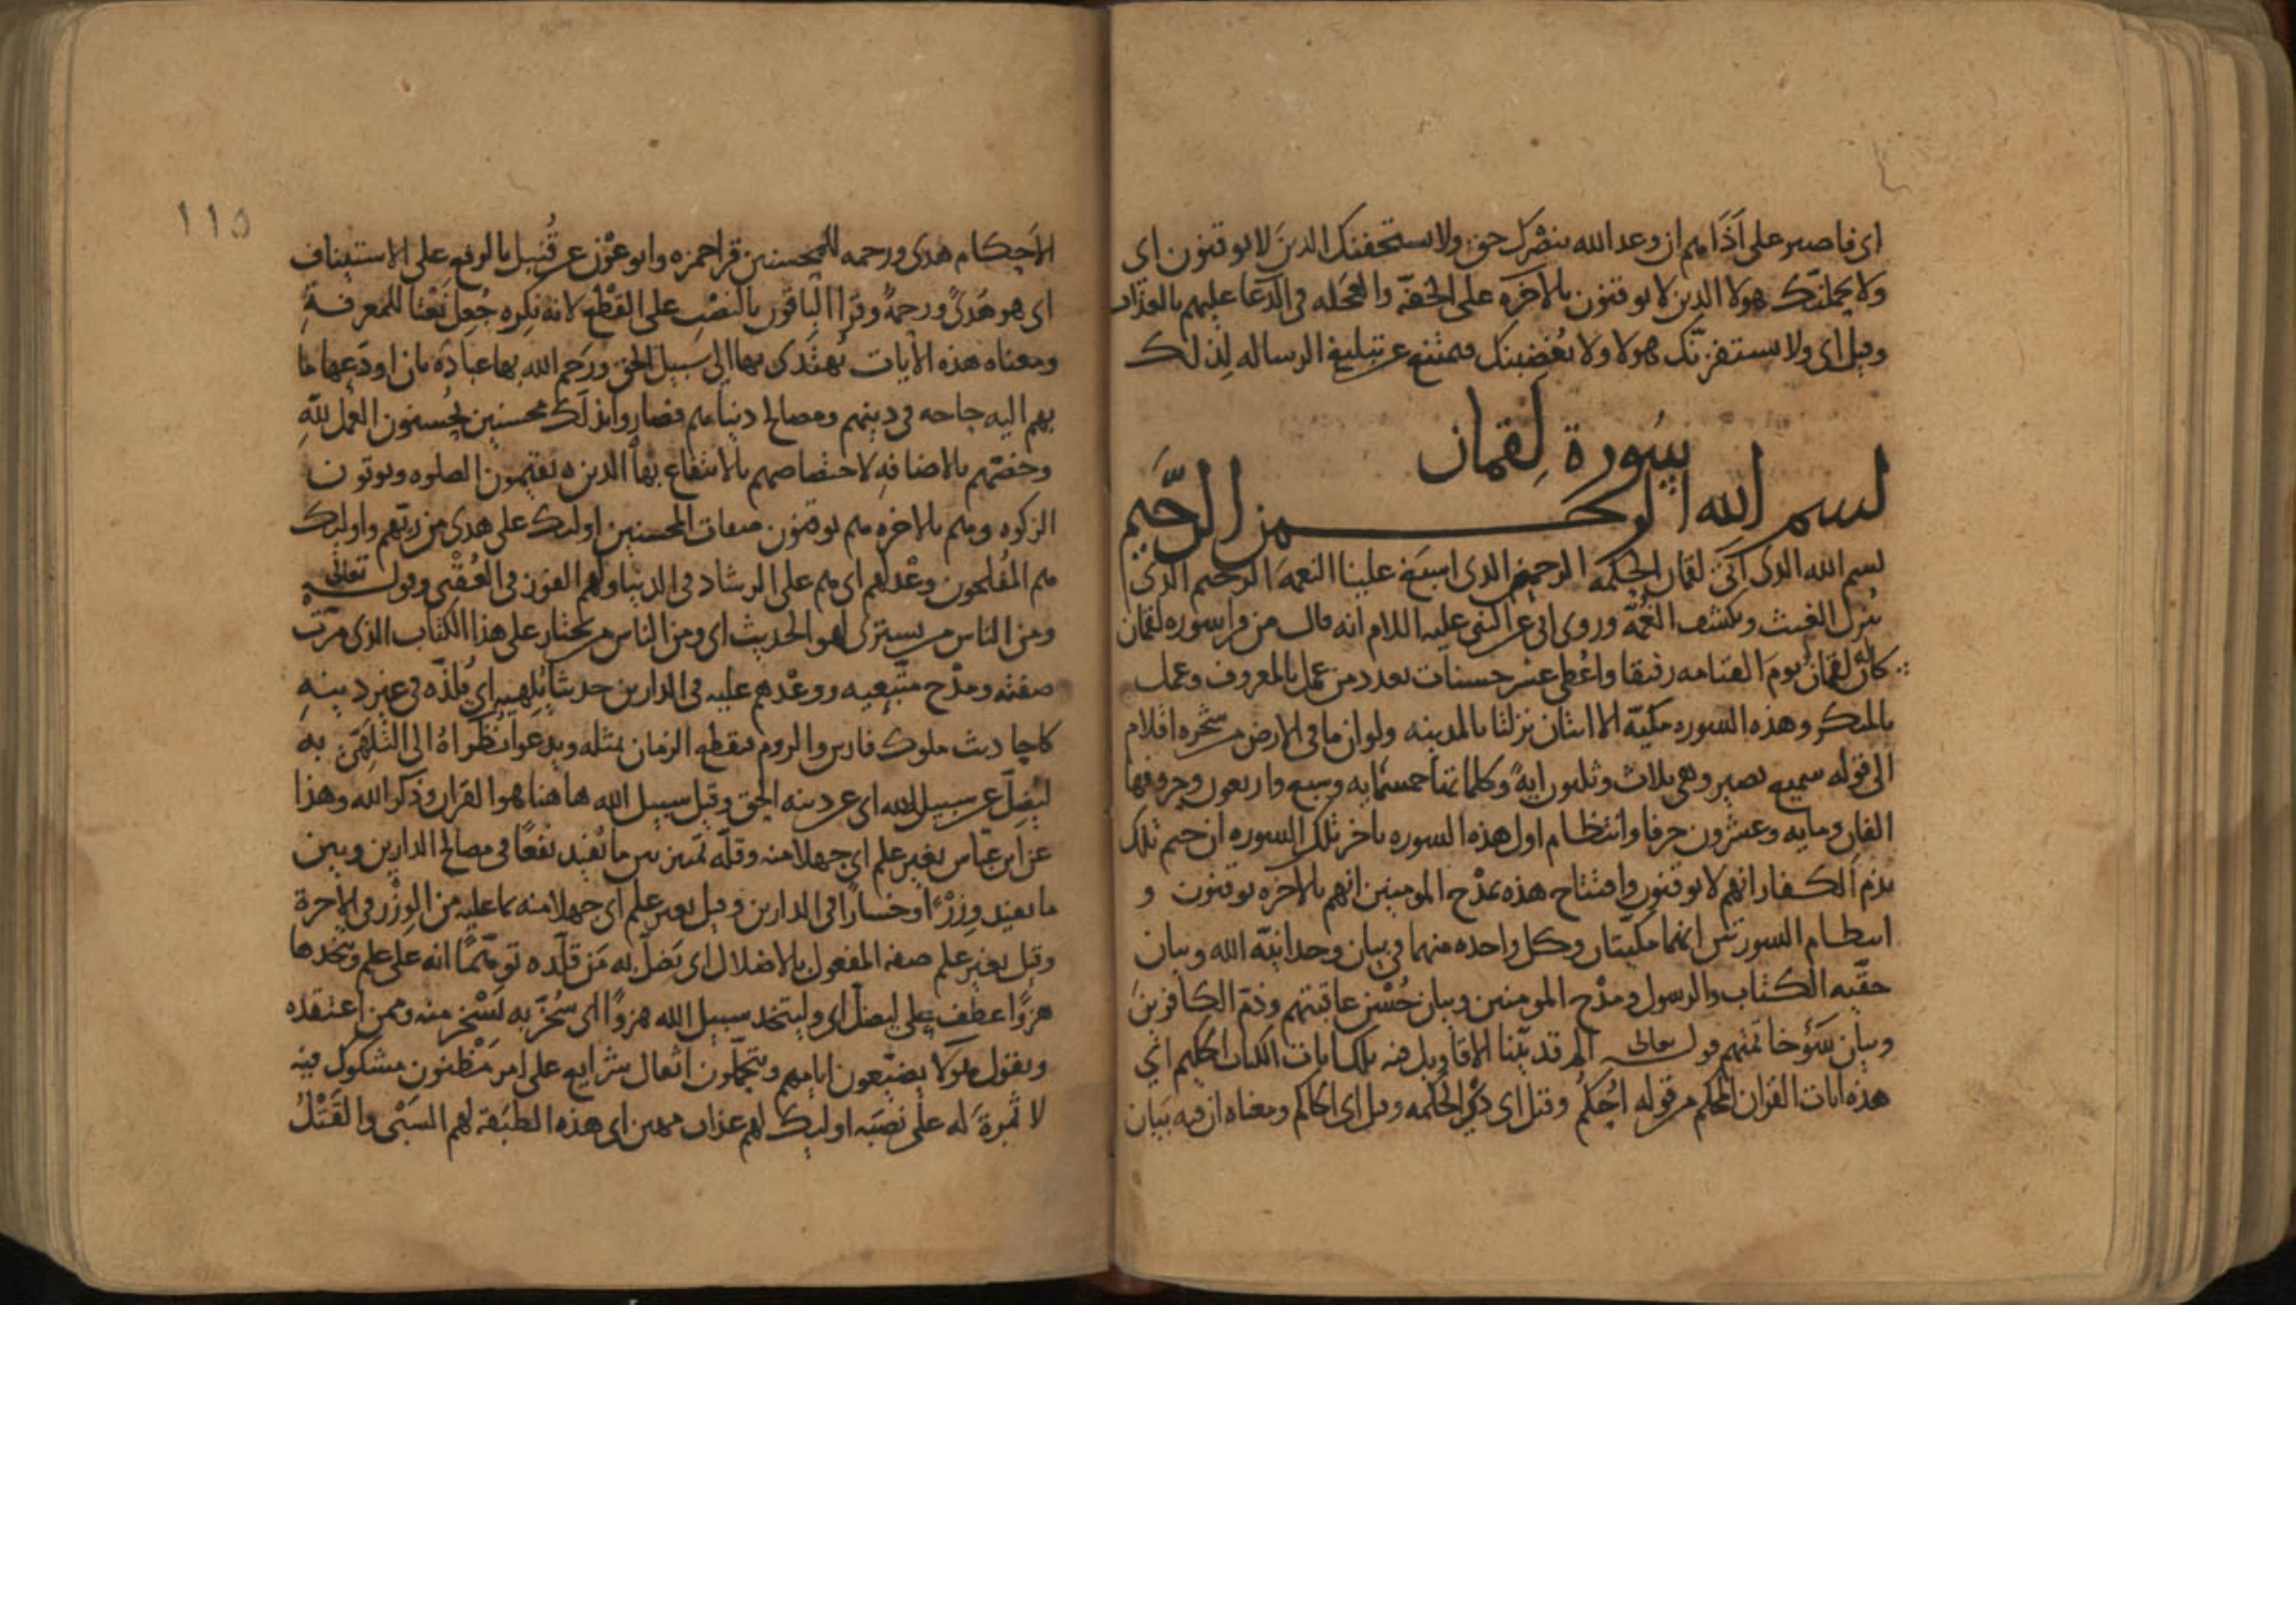 اى فاصبر على اذاهم ان وعد الله بنصرك حق ولا يستخفنك الذين لا يوقنون اى
ولا يحملنك هولا الذين لا يوقنون بالاخره على الخفة والعجله فى الدعا عليهم بالعذاب
وقيل اى ولا يستفزنك هولا ولا يغضبنك فتمتنع عن تبليغ الرساله لذلك
سورة لقمان
بسم الله الرحمن الرحيم
بسم الله الذى اتى لقمان الحكمه الرحمن الذى اسبغ علينا النعمه الرحيم الذى
ينزل الغيث ويكشف الغمه وروى ابى عن النبى عليه اللام انه قال من قرا سوره لقمان
كان له لقمان يوم القيامه رفيقا واعطى عشر حسنات بعدد من عمل بالمعروف وعمل
بالمنكر وهذه السوره مكيه الا ايتان نزلتا بالمدينه ولو ان ما فى الارض من شجره اقلام
الى قوله سميع بصير وهى ثلاث وثلثون ايه وكلماتها خمسمايه وسبع واربعون وحروفها
الفان ومايه وعشرون حرفا وانتظام اول هذه السوره باخر تلك السوره ان ختم تلك
بذم الكفار انهم لا يوقنون وافتتاح هذه بمدح المومنين انهم بالاخره يوقنون و
انتظام السورتين انهما مكيتان وكل واحده منهما فى بيان وحدانية الله وبيان
حقيه الكتاب والرسول ومدح المومنين وبيان حسن عاقبتهم وذم الكافرين
وبيان سوء خاتمتهم قوله تعالى الم قد بينا الاقاويل فيه تلك ايات الكتاب الحكيم اي
هذه ايات القران المحكم من قوله احكم وقيل اى ذكر الحكمه وقيل اى الحاكم ومعناه ان فيه بيان
١١٥
الاحكام هدى ورحمه للمحسنين قرا حمزه وابو عون عن قنبل بالرفع على الاستيناف
اى هو هدى ورحمة وقرا الباقون بالنصب على القطع لانه نكره جعل نعتا للمعرفة
ومعناه هذه الايات يهتدى بها الى سبيل الحق ورحم الله بها عباده بان اودعها ما
بهم اليه حاحه فى دينهم ومصالح دنياهم فصاروا بذلك محسنين يحسنون العمل لله
وخصهم بالاضافه لاختصاصهم بالانتفاع بها الذين يقيمون الصلوه ويوتون
الزكوه وهم بالاخره هم يوقنون صفات المحسنين اوليك على هدى من ربهم واوليك
هم المفلحون وعد لهم اى هم على الرشاد فى الدنيا ولهم الفوز فى العقبى وقوله تعالى
ومن الناس من يشترى لهو الحديث اى ومن الناس من يختار على هذا الكتاب الذى مرت
صفته ومدح متبعيه ووعدهم عليه فى الدارين حديثا يلهيه اى يلذه فى غير دينه
كاحاديث ملوك فارس والروم فيقطع الزمان بمثله ويدعوا نظراه الى التلهى به
ليضل عن سبيل الله اى عن دينه الحق وقيل سبيل الله هاهنا هو القران وذكر الله وهذا
عن ابن عباس بغير علم اى جهلا منه وقلة تميز بين ما يفيد نفعا فى مصالح الدارين وبين
ما يفيد وزرا وخسارا فى الدارين وقيل بغير علم اى جهلا منه بما عليه من الوزر فى الاخرة
وقيل بغير علم صفه المفعول بالاضلال اى يضل به من قلده توهما انه على علم ويتخذها
هزوا عطف على ليضل اى وليتخذ سبيل الله هزوا اى سخر به يسخر منه وممن اعتقده
ويقول هولا يضيعون ايامهم ويتحملون اثقال شرايع على امر مظنون مشكوك فيه
لا ثمرة له على نصبه اوليك لهم عذاب مهين اى هذه الطبقة لهم السبى والقتل